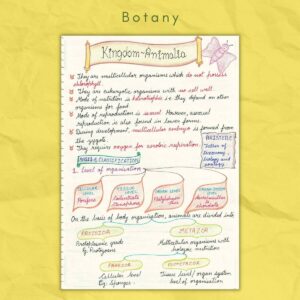 Botany
Kingdom-Animalia
They are multicellular organisms which do not possess
chlorophyll.
They are eukaryotic organisms with no cell wall.
Mode of nutrition is heterotrophic i.e they depend on other
organisms for food.
Mode of reproduction is sexual. However, asexual
reproduction is also found in lower forms.
During development, multicellular embryo is formed from
the zygote.
They require oxygen for aerobic respiration.
ARISTOTLE
Father of
taxonomy,
biology and
zoology
BASIS OF CLASSIFICATION
1. Level of organisation
CELLULAR LEVEL
Porifera
TISSUE LEVEL
ORGAN LEVEL
ORGAN SYSTEM LEVEL
On the basis of body organisation, animals are divided into
PROTOZOA
METAZOA
Protoplasmic grade
Eg. Protozoans
Multicellular organisms with
holozoic nutrition
PARAZOA
EUMETAZOA
Cellular level
Eg: Sponges
Tissue level/ organ system
level of organisation